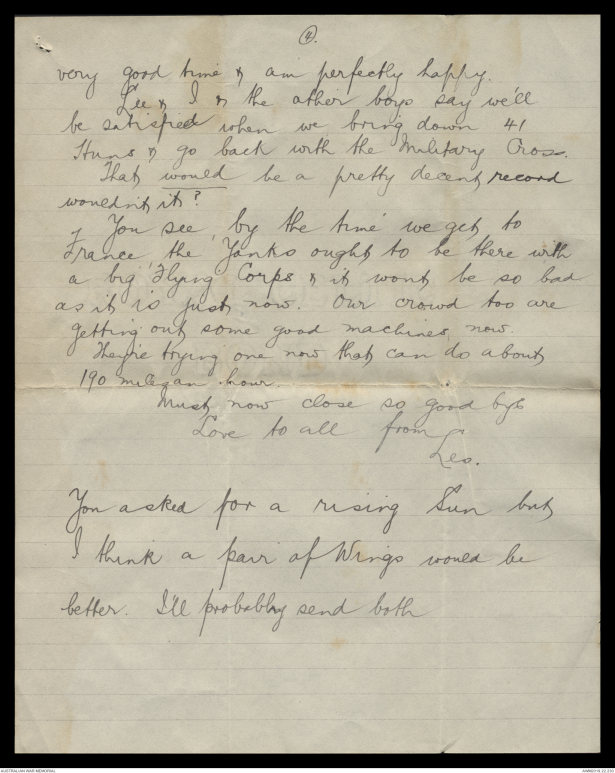 4.
very good time & am perfectly happy.
Lee & I & the other boys say we'll
be satisfied when we bring down 41
Huns & go back with the Military Cross.
That would be a pretty decent record
wouldn't it?
You see, by the time we get to
France, the Yanks ought to be there with
a big Flying Corps & it wont be so bad
as it is just now. Our crowd too are
getting out some good machines now.
They're trying one now that can do about
190 miles an hour.
Must now close so good bye
Love to all from
Les.
You asked for a rising Sun but
I think a pair of Wings would be
better. I'll probably send both
AUSTRALIAN WAR MEMORIAL